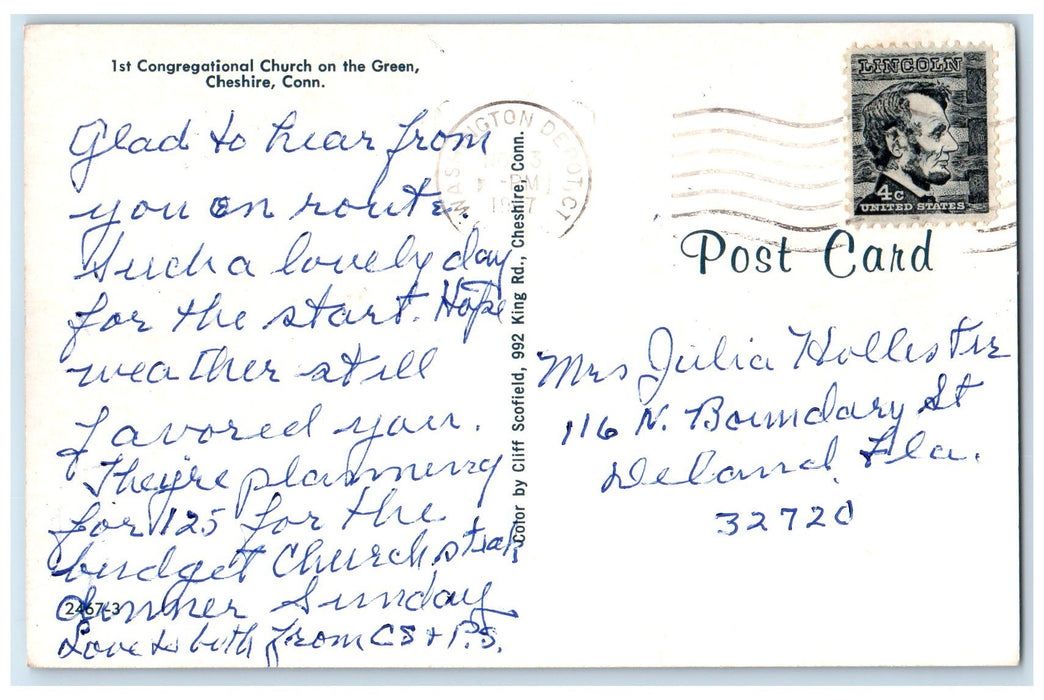 1st Congregational Church on the Green,
Cheshire, Conn.
Glad to hear from
you en route.
Such a lovely day
for the start. Hope
weather still
favored you.
They're planning
for 125 for the
budget Church steak
dinner Sunday
Love to both from CS + P.S.
2467-3
Color by Cliff Scofield, 992 King Rd., Cheshire, Conn.
WASHINGTON DEPOT, CT
PM
LINCOLN
4c
UNITED STATES
Post Card
Mrs Julia Hollister
116 N. Boundary St
Deland Fla.
32720